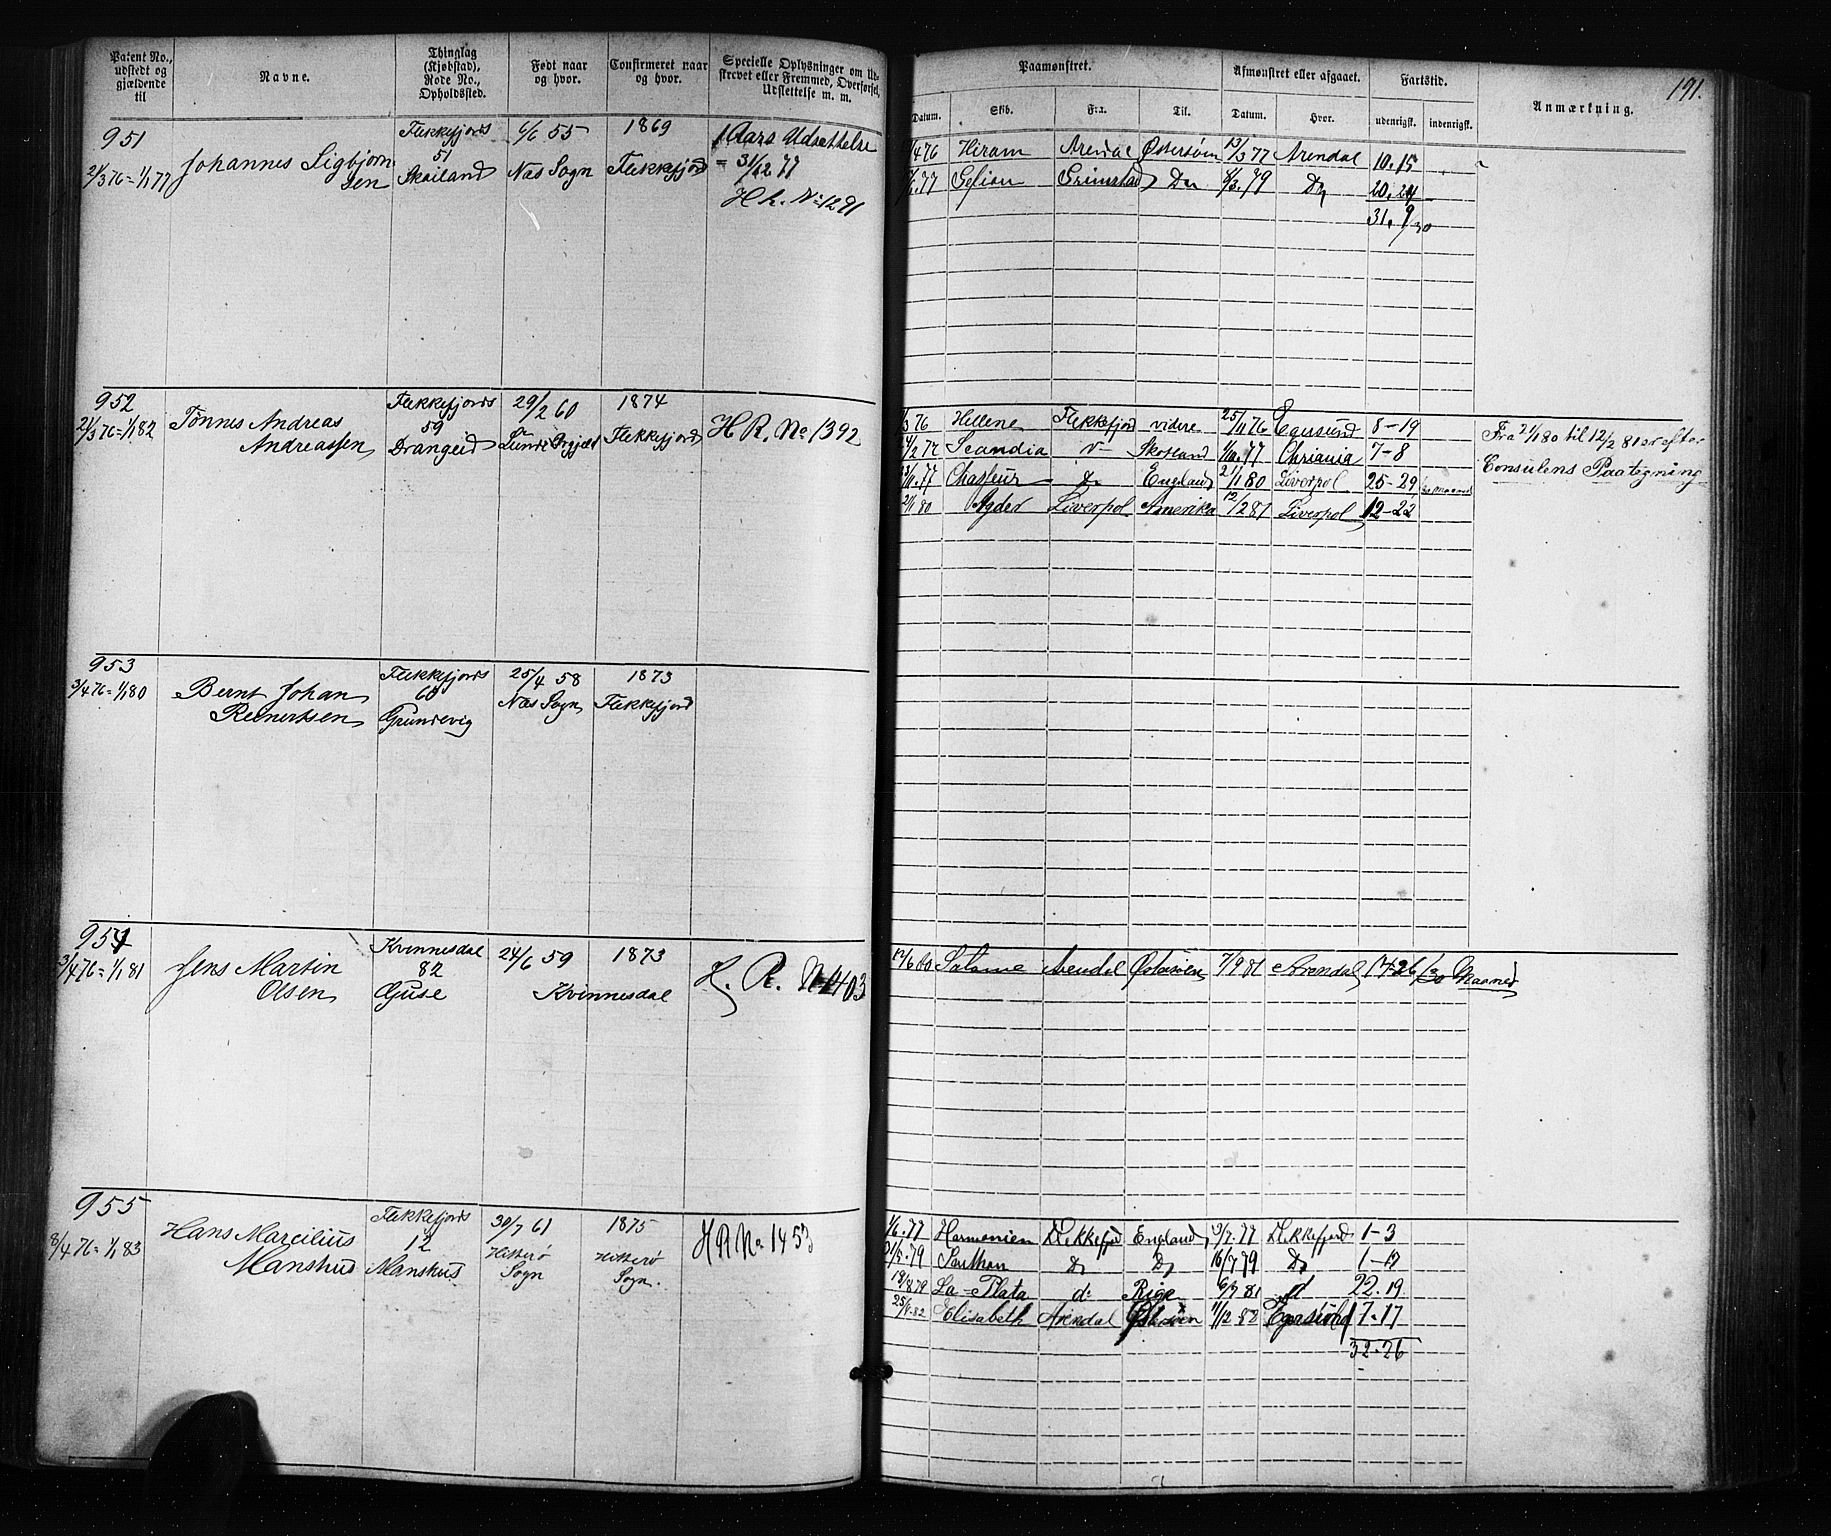 Patent No., udstedt og gjældende til
Navne.
Thinglag (Kjøbstad), Rode No., Opholdssted.
Født naar og hvor.
Confirmeret naar og hvor.
Specielle Oplysninger om Udskrevet eller Fremmed, Overførsel, Udslettelse m. m.
Paamønstret.
Afmønstret eller afgaaet.
Fartstid.
Anmærkning.
191.
Datum.
Skib.
Fra.
Til.
Datum.
Hvor.
udenrigsk.
indenrigsk.
951
21/3 76 = 1/1 77
Johannes Sigbjørn
sen
Flekkefjords
51
Skailand
6/6 55
Næs Sogn
1869
Flekkefjord
1 Aars Udsættelse
= 31/12 77
H. R. No 1291
/4 76 Hiram Arendal Østersøen 13/3 77 Arendal 10. 15
77 Gefion Grimstad Do /3 79 Do 20. 24
31. 9/30
952
21/3 76 = 1/1 82
Tønnes Andreas
Andreassen
Flekkefjords
59
Drangeid
29/2 60
1874
Flekkefjord
H R. No 1392
/3 76 Hellene Flekkefjord videre 25/11 76 Egersund 8-19
/2 77 Scandia Skotland 1/10 77 Chriania 7-8
/11 77 Chasseur do England 21/1 80 Liverpol 25-29
21/1 80 Agder Liverpol Amerika 12/2 81 Liverpol 12-22
Fra 21/1 80 til 12/2 81 er efter
Consulens Paategning
953
3/4 76 = 1/1 80
Bernt Johan
Reinertsen
Flekkefjords
60
Grundevig
25/4 58
Næs Sogn
1873
Flekkefjord
954
3/4 76 = 1/1 81
Jens Martin
Olsen
Kvinnesdal
82
Gjuse
24/6 59
1873
Kvinnesdal
H. R. No 1403
12/6 80 Salome Arendal Østersøen 7/9 81 Arendal 14 26/30 Maaned
955
8/4 76 = 1/1 83
Hans Marcilius
Manshus
Flekkefjords
12
Manshus
30/7 61
Hitterø
Sogn
1875
Hitterø
Sogn.
H R No 1453
/6 77 Harmonien Flekkefjord England /7 77 Flekkefjord 1-3
/5 79 Do Do 16/7 79 Do 1-17
18/8 79 La-Plata do Riga 6/7 81 d 22. 19
25/4 82 Elisabeth Arendal Østersøen 11/12 82 Egersund 7-17
32-26